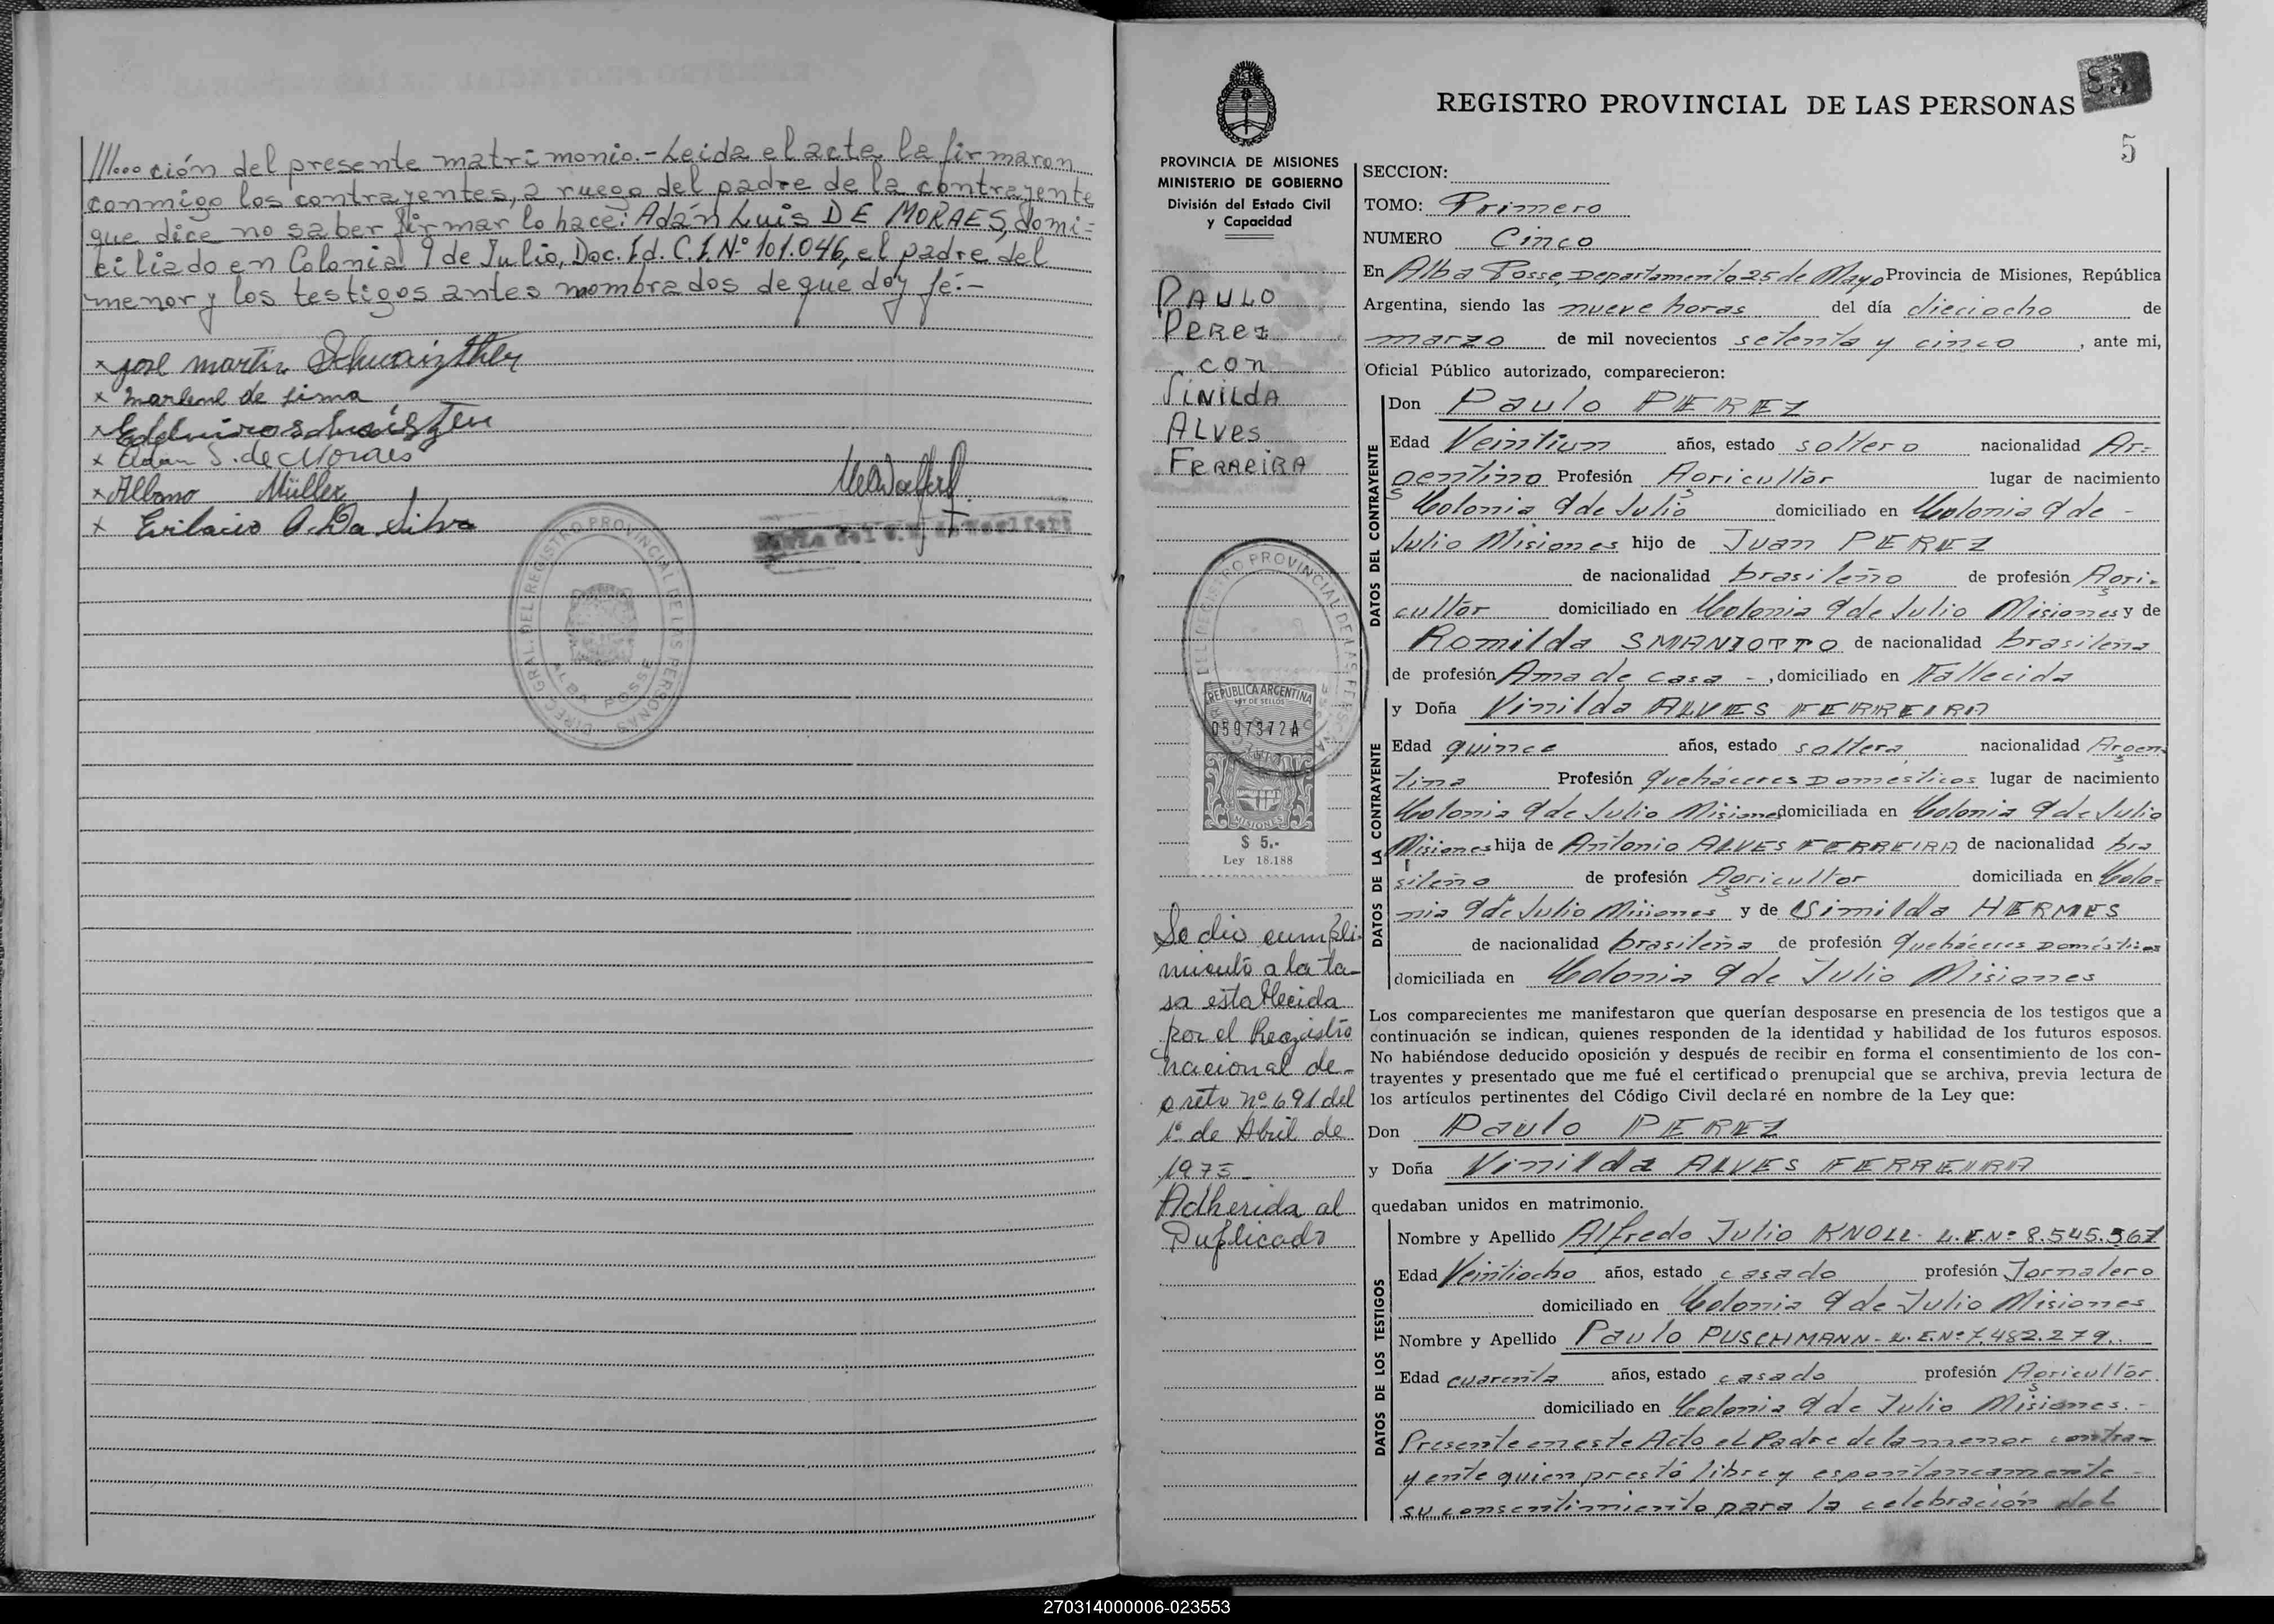 ///...ción del presente matrimonio.- Leida el acta, la firmaron
conmigo los contrayentes, a ruego del padre de la contrayente
que dice no saber firmar lo hace: Adán Luis DE MORAES, domi=
ciliado en Colonia 9 de Julio, Doc. Id. C.I. Nº 101.046, el padre del
menor y los testigos antes nombrados de que doy fé.-
x José martin
x marlene de lima
x Adan S. de Moraes
x Albano Müller
x A. Da Silva
DIREC. GRAL. DEL REGISTRO PROVINCIAL DE LAS PERSONAS
ALBA POSSE
REGISTRO PROVINCIAL DE LAS PERSONAS
5
PROVINCIA DE MISIONES
MINISTERIO DE GOBIERNO
División del Estado Civil
y Capacidad
PAULO
PEREZ
con
VINILDA
ALVES
FERREIRA
REPUBLICA ARGENTINA
LEY DE SELLOS
0597372A
MISIONES
$ 5.-
Ley 18.188
Se dio cumpli-
miento a la ta-
sa establecida
por el Registro
nacional de-
creto nº 691 del
1º de Abril de
1973-
Adherida al
Duplicado
SECCION:
TOMO: Primero
NUMERO Cinco
En Alba Posse, Departamento 25 de Mayo Provincia de Misiones, República
Argentina, siendo las nueve horas del día dieciocho de
marzo de mil novecientos setenta y cinco, ante mi,
Oficial Público autorizado, comparecieron:
DATOS DEL CONTRAYENTE
Don Paulo PEREZ
Edad Veintiun años, estado soltero nacionalidad Ar=
gentino Profesión Agricultor lugar de nacimiento
Colonia 9 de Julio domiciliado en Colonia 9 de -
Julio Misiones hijo de Juan PEREZ
de nacionalidad brasileño de profesión Agri-
cultor domiciliado en Colonia 9 de Julio Misiones y de
Romilda SMANIOTTO de nacionalidad brasileña
de profesión Ama de casa -, domiciliado en Fallecida
DATOS DE LA CONTRAYENTE
y Doña Vinilda ALVES FERREIRA
Edad quince años, estado soltera nacionalidad Argen-
tina Profesión Quehaceres Domesticos lugar de nacimiento
Colonia 9 de Julio Misiones domiciliada en Colonia 9 de Julio
Misiones hija de Antonio ALVES FERREIRA de nacionalidad bra
sileño de profesión Agricultor domiciliada en Colo-
nia 9 de Julio Misiones y de HERMES
de nacionalidad brasileña de profesión Quehaceres Domésticos
domiciliada en Colonia 9 de Julio Misiones
Los comparecientes me manifestaron que querían desposarse en presencia de los testigos que a
continuación se indican, quienes responden de la identidad y habilidad de los futuros esposos.
No habiéndose deducido oposición y después de recibir en forma el consentimiento de los con-
trayentes y presentado que me fué el certificado prenupcial que se archiva, previa lectura de
los artículos pertinentes del Código Civil declaré en nombre de la Ley que:
Don Paulo PEREZ
y Doña Vinilda ALVES FERREIRA
quedaban unidos en matrimonio.
DATOS DE LOS TESTIGOS
Nombre y Apellido Alfredo Julio KNOLL- L.E.Nº 8.545.567
Edad Veintiocho años, estado casado profesión Jornalero
domiciliado en Colonia 9 de Julio Misiones
Nombre y Apellido Paulo PUSCHMANN- L.E.Nº 7.482.279.
Edad cuarenta años, estado casado profesión Agricultor
domiciliado en Colonia 9 de Julio Misiones.-
Presente en este Acto el Padre de la menor contra-
yente quien prestó libre y espontaneamente -
su consentimiento para la celebración del
270314000006-023553